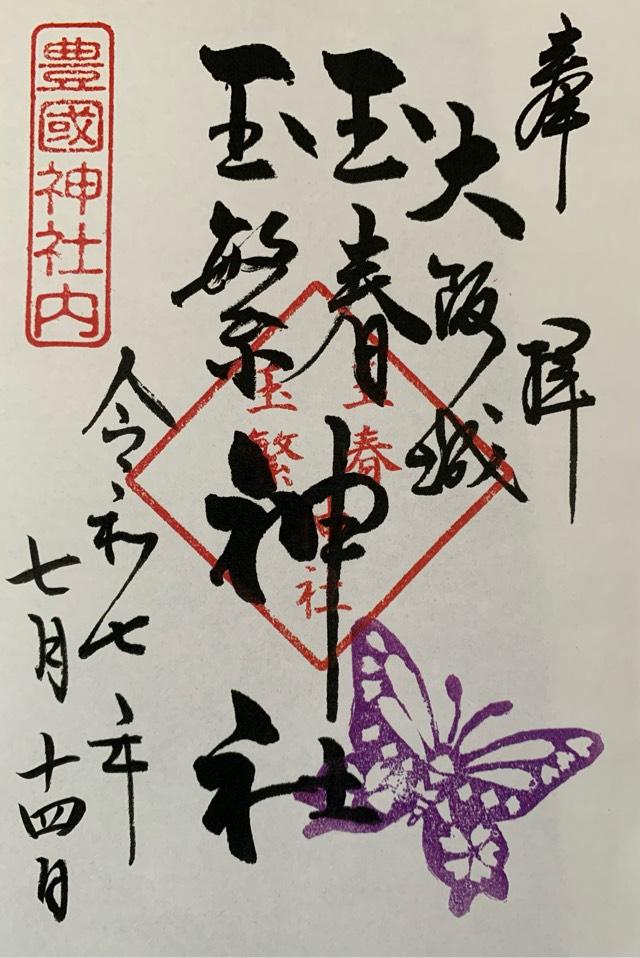 奉拝
大阪城
玉春
玉繁
神社
令和七年
七月十四日
豊國神社内
玉春
玉繁
神社